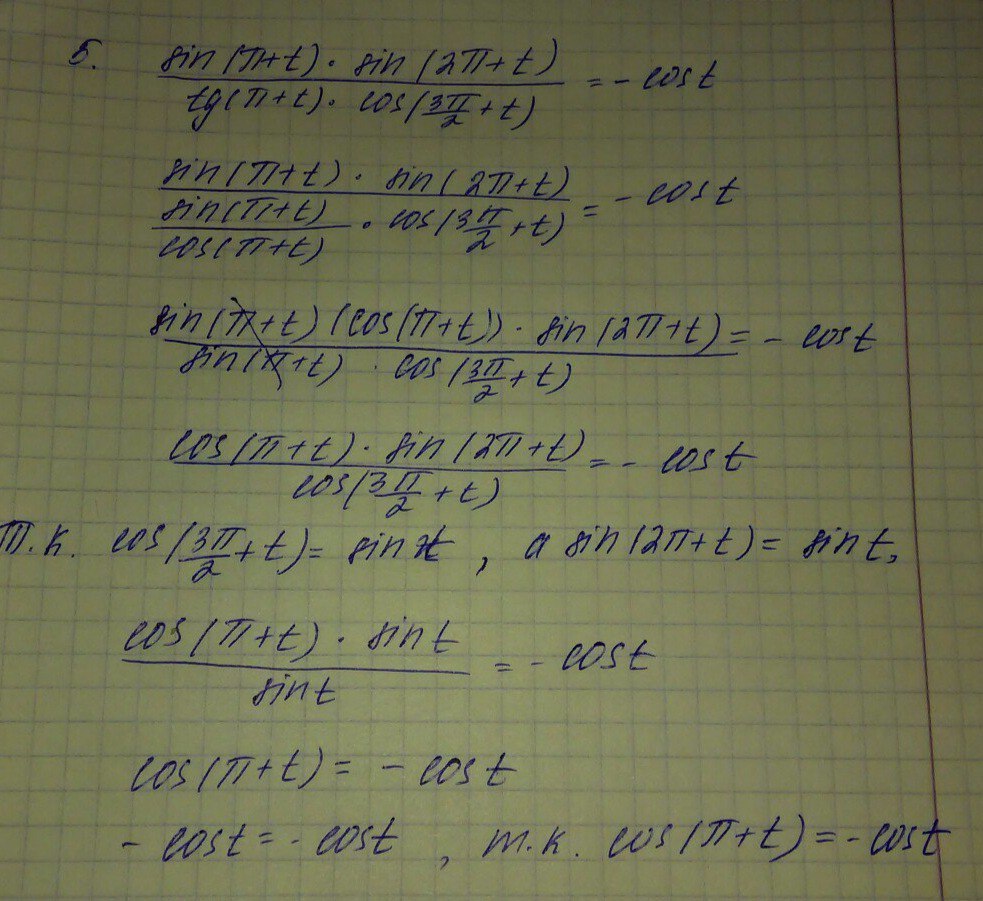 5. sin(π+t) · sin(2π+t) / tg(π+t) · cos(3π/2+t) = - cost
sin(π+t) · sin(2π+t) / sin(π+t)/cos(π+t) · cos(3π/2+t) = - cost
sin(π+t) (cos(π+t)) · sin(2π+t) / sin(π+t) · cos(3π/2+t) = - cost
cos(π+t) · sin(2π+t) / cos(3π/2+t) = - cost
т.к. cos(3π/2+t) = sin t, а sin(2π+t) = sin t,
cos(π+t) · sin t / sin t = - cost
cos(π+t) = - cost
- cost = - cost, т.к. cos(π+t) = - cost